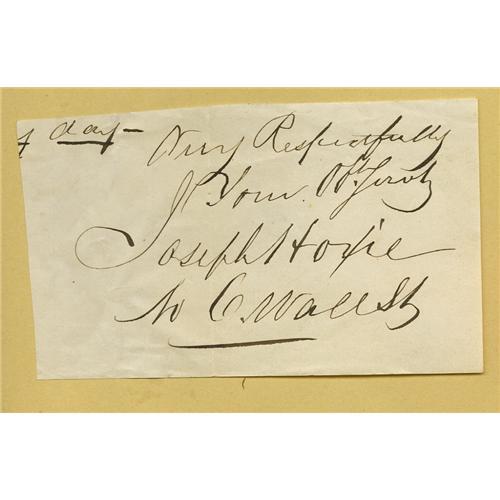 day –
Very Respectfully
Your Obt. Servt
Joseph Hoxie
No 6. Wall St